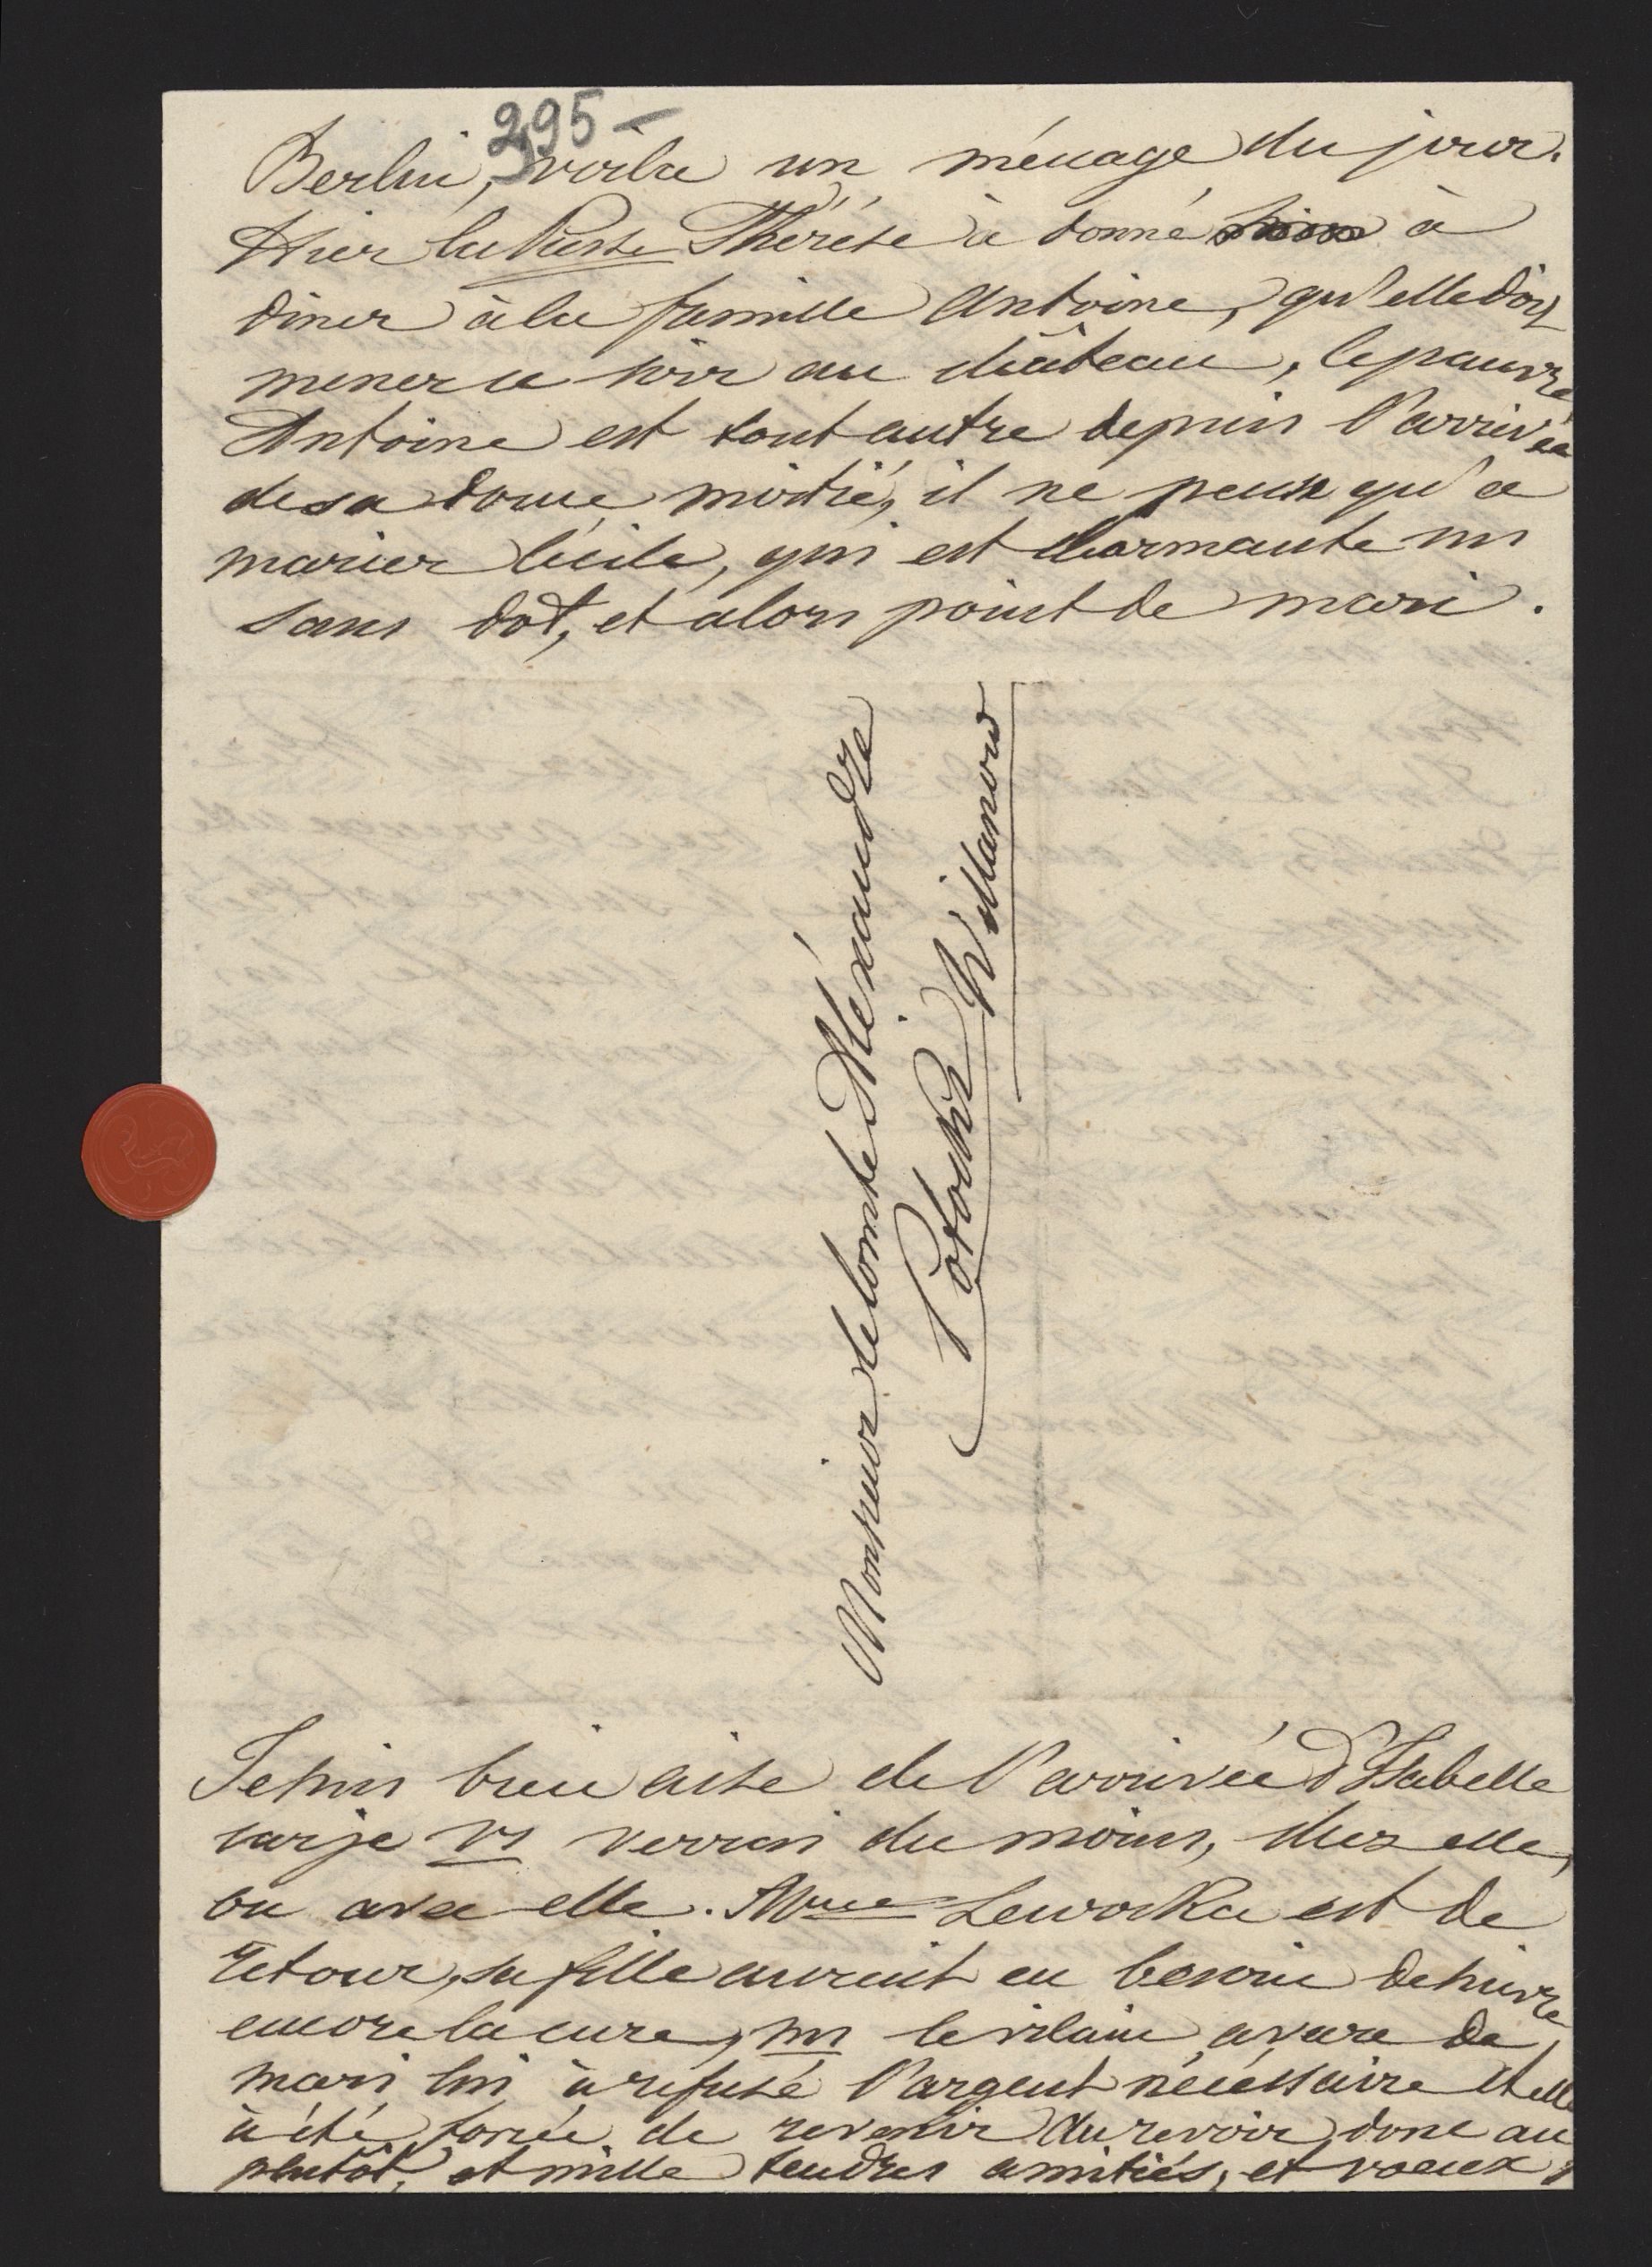 295 –
Berlin, voila un ménage du jour.
Hier la Psse Thérèse à donné à
diner à la famille Antoine, qu'elle doit
mener ce soir au château, le pauvre
Antoine est tout autre depuis l'arrivée
de sa douce moitié, il ne pense qu'a
marier Cécile, qui est charmante ms
sans dot, et alors point de mari.
Monsieur le Comte Aléxandre
Potocki Willanow
Je suis bien aise de l'arrivée d'Isabelle
car je vs verrai du moins, chez elle,
ou avec elle. Mme Lewocka est de
retour, sa fille auroit eu besoin de suivre
encore la cure, ms le vilain avare de
mari lui à refusé l'argent nécéssaire et elle
à été forcée de revenir. Au revoir donc au
plutôt, et mille tendres amitiés, et voeux